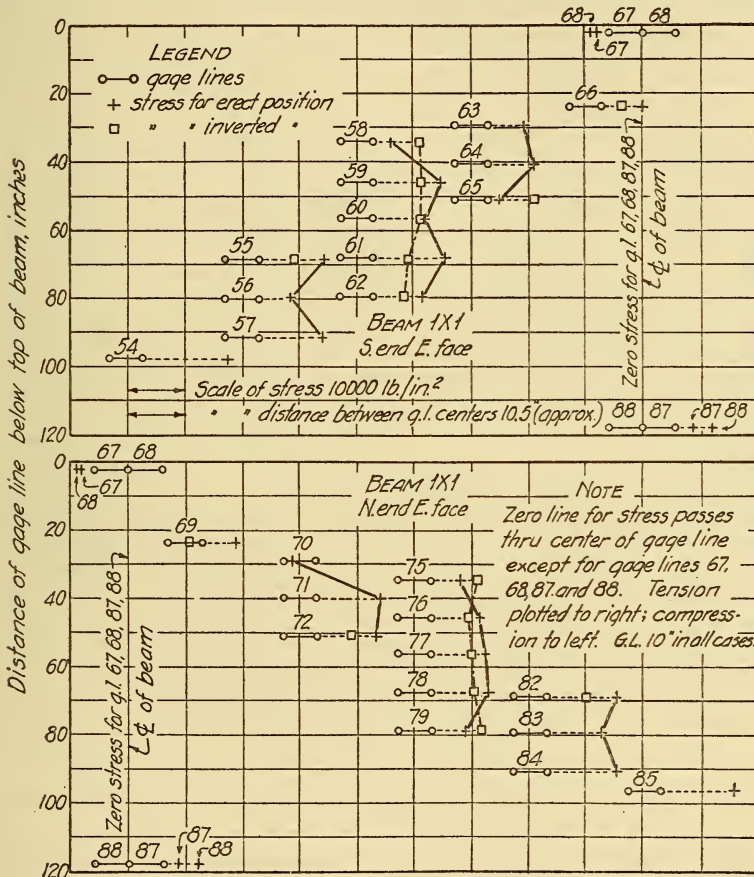 Distance of gage line below top of beam, inches
0
20
40
60
80
100
120
LEGEND
gage lines
stress for erect position
" " inverted "
68 67 68
67
66
63
58
64
59
65
60
55
61
56
62
57
54
BEAM 1X1
S. end E. face
Zero stress for g.l. 67, 68, 87, 88
℄ of beam
Scale of stress 10000 lb./in.²
" " distance between g.l. centers 10.5" (approx.)
88 87 87 88
0
20
40
60
80
100
120
67 68
67
68
69
70
71
72
75
76
77
78
79
82
83
84
85
BEAM 1X1
N. end E. face
NOTE
Zero line for stress passes
thru center of gage line
except for gage lines 67,
68, 87, and 88. Tension
plotted to right; compres-
sion to left. G.L. 10" in all cases.
Zero stress for g.l. 67, 68, 87, 88
℄ of beam
88 87 87
88